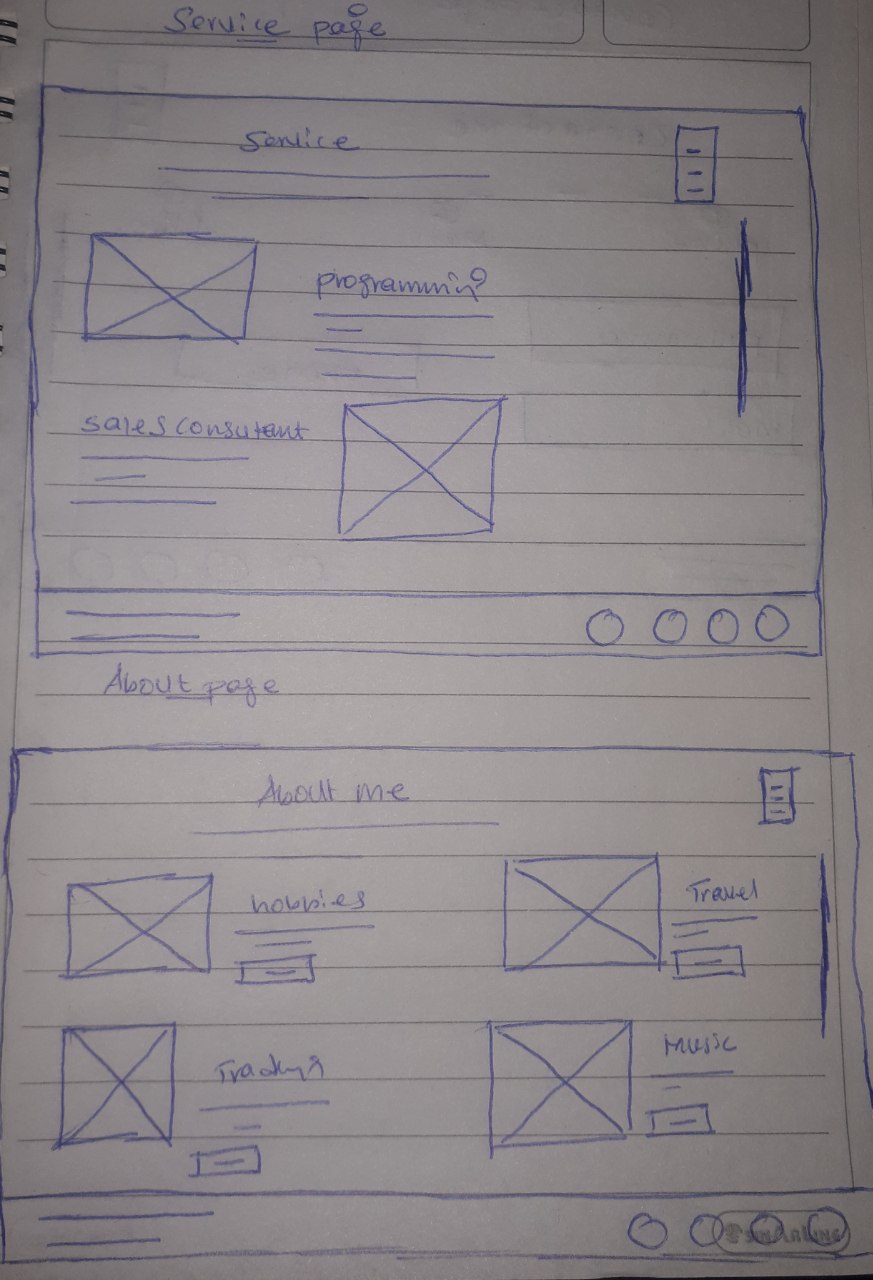 Service page
Service
programming
sales consutant
About page
About me
hobbies
Travel
Music